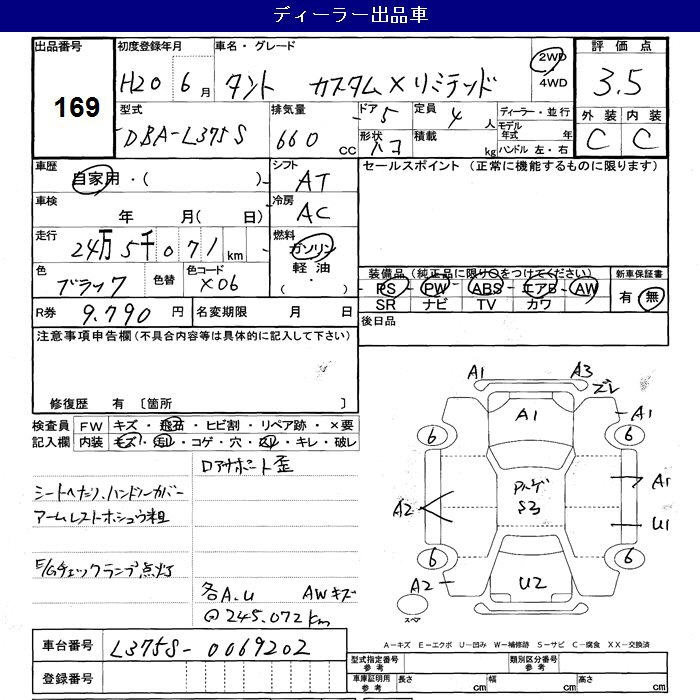 ディーラー出品車
出品番号 初度登録年月 車名・グレード 評価点
169 H20 6月 タント カスタム X リミテッド 2WD 4WD 3.5
型式 排気量 ドア 5 定員 4人 ディーラー・並行 外装 内装
DBA-L375S 660 CC 形状 ハコ 積載 kg モデル年式 年 ハンドル 左・右 C C
車歴 自家用・( ) シフト AT セールスポイント (正常に機能するものに限ります)
車検 年 月( 日) 冷房 AC
走行 24万5千071km 燃料 ガソリン 軽油 ( ・ )
色 ブラック 色替 色コード X06 装備品(純正品に限り○をつけてください) 新車保証書
PS - PW - ABS - エアB - AW 有 無
SR ナビ TV カワ
R券 9.790円 名変期限 月 日 後日品
注意事項申告欄(不具合内容等は具体的に記入して下さい)
修復歴 有 〔箇所 〕
検査員 FW キズ・飛石・ヒビ割・リペア跡・×要
記入欄 内装 キズ・汚レ・コゲ・穴・スレ・キレ・破レ
シートヘたり、ハンドルカバー
アームレストホシュウ粗
E/Gチェックランプ点灯
各A.U AWキズ
@245.072km
A1 A3
ズレ
A1 A1
6 6
A1
S3
A2 U1
6 6
A2 U2
スペア
A-キズ E-エクボ U-凹み W-補修跡 S-サビ C-腐食 XX-交換済
車台番号 L375S-0069202
登録番号
型式指定番号 参考 類別区分番号 参考
車庫証明用 参考 長さ cm 幅 cm 高さ cm